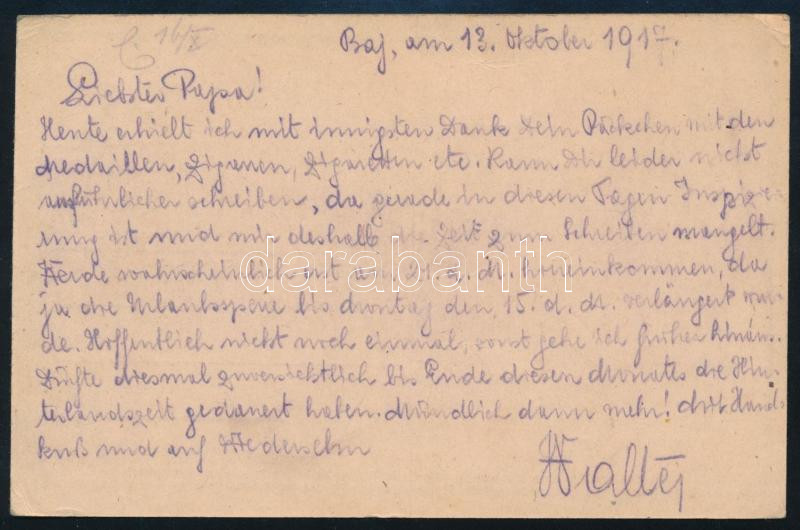 16/X
Baj, am 13. Oktober 1917.
Liebster Papa!
Heute erhielt ich mit innigsten Dank Dein Päckchen mit den
Medaillen, Zigarren, Zigaretten etc. Kann Dir leider nicht
ausführlicher schreiben, da gerade in diesen Tagen Inspizie-
rung ist und mir deshalb die Zeit zum Schreiben mangelt.
Werde wahrscheinlich erst am 21. d. M. hineinkommen, da
ja die Urlaubssperre bis Montag den, 15. d. M. verlängert wur-
de. Hoffentlich nicht noch einmal, sonst gehe ich früher hinaus.
Dürfte diesmal zuversichtlich bis Ende dieses Monates die Hin-
terlandszeit gedauert haben. Mündlich dann mehr! Mit Hand-
kuß und auf Wiedersehn
Walter
darabanth
.com